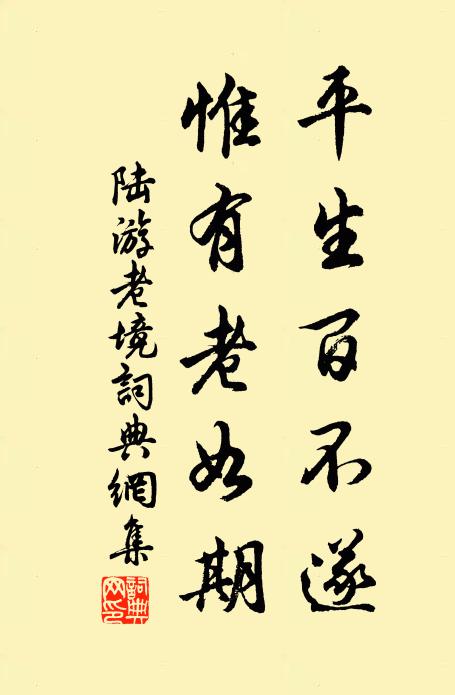 平生百不遂
惟有老如期
陆游老境詞典網集
詞典网印